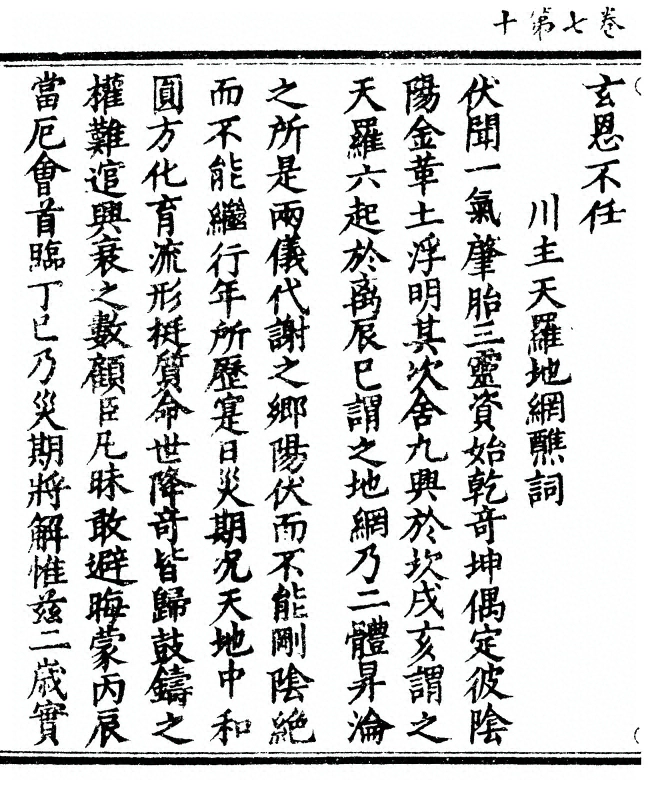 卷七第十
玄恩不任
川主天羅地網醮詞
伏聞一氣肇胎三靈資始乾竒坤偶定彼陰
陽金革土浮明其次舍九興於坎戌亥謂之
天羅六起於离辰巳謂之地網乃二體昇淪
之所是兩儀代謝之鄉陽伏而不能剛陰絶
而不能繼行年所歷寔日災期况天地中和
圓方化育流形挺質命世降竒皆歸鼓鑄之
權難逭興衰之數顧臣凡昧敢避晦蒙丙辰
當厄會首臨丁巳乃災期將解惟兹二歲實